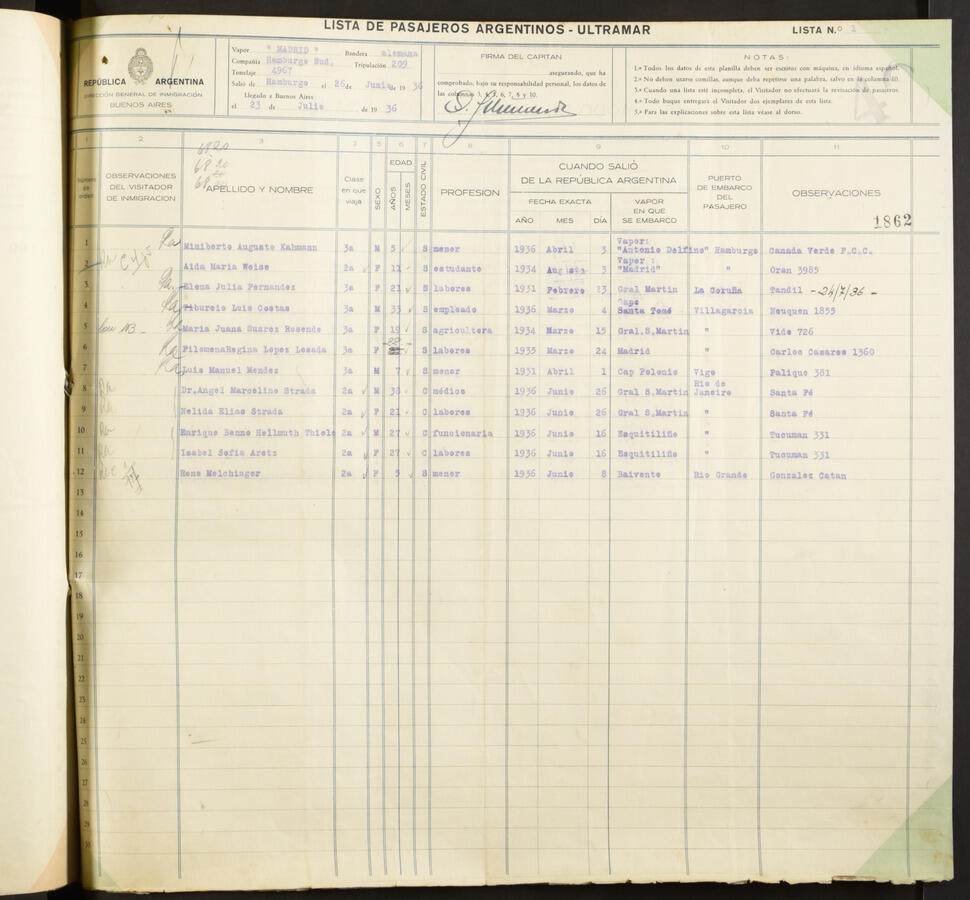 LISTA DE PASAJEROS ARGENTINOS - ULTRAMAR
LISTA N.o 1
REPÚBLICA ARGENTINA
DIRECCIÓN GENERAL DE INMIGRACIÓN
BUENOS AIRES
Vapor " MADRID " Bandera alemana
Compañía Hamburgo Sud. Tripulación 209
Tonelaje 4967
Salió de Hamburgo el 26 de Junio de 19 36
Llegado a Buenos Aires
el 23 de Julio de 19 36
FIRMA DEL CAPITAN
asegurando, que ha
comprobado, bajo su responsabilidad personal, los datos de
las columnas 3, 4, 5, 6, 7, 8 y 10.
NOTAS:
1.a Todos los datos de esta planilla deben ser escritos con máquina, en idioma español.
2.a No deben usarse comillas, aunque deba repetirse una palabra, salvo en la columna 10.
3.a Cuando una lista esté incompleta, el Visitador no efectuará la revisación de pasajeros.
4.a Todo buque entregará el Visitador dos ejemplares de esta lista.
5.a Para las explicaciones sobre esta lista véase al dorso.
1 2 3 3 5 6 7 8 9 10 11
6820
6820
68
Número de orden
OBSERVACIONES DEL VISITADOR DE INMIGRACION
APELLIDO Y NOMBRE
Clase en que viaja
SEXO
EDAD
AÑOS
MESES
ESTADO CIVIL
PROFESION
CUANDO SALIÓ
DE LA REPÚBLICA ARGENTINA
FECHA EXACTA
AÑO MES DÍA
VAPOR EN QUE SE EMBARCO
PUERTO DE EMBARCO DEL PASAJERO
OBSERVACIONES
1862
1 Miniberto Auguste Kahmann 3a M 5 S menor 1936 Abril 3 Vapor: "Antonio Delfino" Hamburgo Canada Verde F.C.C.
2 Aida Maria Weise 2a F 11 S estudante 1934 Augosto 3 Vapor : "Madrid" " Oran 3985
3 Elena Julia Fernandez 3a F 21 S labores 1931 Febrero 23 Gral Martin La Coruña Tandil - 24/7/36 -
4 Tiburcio Luis Costas 3a M 33 S empleado 1936 Marzo 4 Cape Santa Tomé Villagarcia Neuquen 1855
5 Maria Juana Suarez Resende 3a F 19 S agricultera 1934 Marzo 15 Gral.S.Martin " Vide 726
6 FilomenaRegina Lopez Losada 3a F 22 S labores 1935 Marzo 24 Madrid " Carlos Casares 1360
7 Luis Manuel Mendez 3a M 7 S menor 1931 Abril 1 Cap Polonio Vigo Palique 381
8 Dr.Angel Marceline Strada 2a M 38 C médico 1936 Junio 26 Gral S.Martin Rio de Janeiro Santa Fé
9 Nelida Elias Strada 2a F 21 C labores 1936 Junio 26 Gral S.Martin " Santa Fé
10 Enrique Benno Hellmuth Thiele 2a M 27 C funcionaria 1936 Junio 16 Esquitiliño " Tucuman 331
11 Isabel Sofia Aretz 2a F 27 C labores 1936 Junio 16 Esquitiliño " Tucuman 331
12 Rene Melchinger 2a F 5 S menor 1936 Junio 8 Baivente Rio Grande Gonzalez Catan
13
14
15
16
17
18
19
20
21
22
23
24
25
26
27
28
29
30